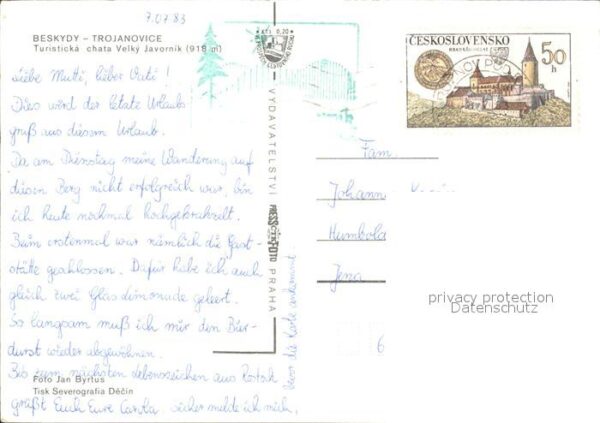 7.07.83
BESKYDY – TROJANOVICE
Turistická chata Velký Javorník (918 m)
Liebe Mutti, lieber Vati!
Dies wird der letzte Urlaubs
gruß aus diesem Urlaub.
Da am Dienstag meine Wanderung auf
diesen Berg nicht erfolgreich war, bin
ich heute nochmal hochgekrabbelt.
Beim erstenmal war nämlich die Gast-
stätte geschlossen. Dafür habe ich auch
gleich zwei Glas Limonade geleert.
So langsam muß ich mir den Bier-
durst wieder abgewöhnen.
Bis zum nächsten Lebenszeichen aus Rostock
grüßt Euch Eure sicher melde ich mich,
bevor die Karte ankommt.
Foto Jan Byrtus
Tisk Severografia Děčín
VYDAVATELSTVÍ
PRESSFOTO
PRAHA
KčS 0,20
ČESKOSLOVENSKO
50
h
Fam.
Johann
Humbold
Jena
6
privacy protection
Datenschutz